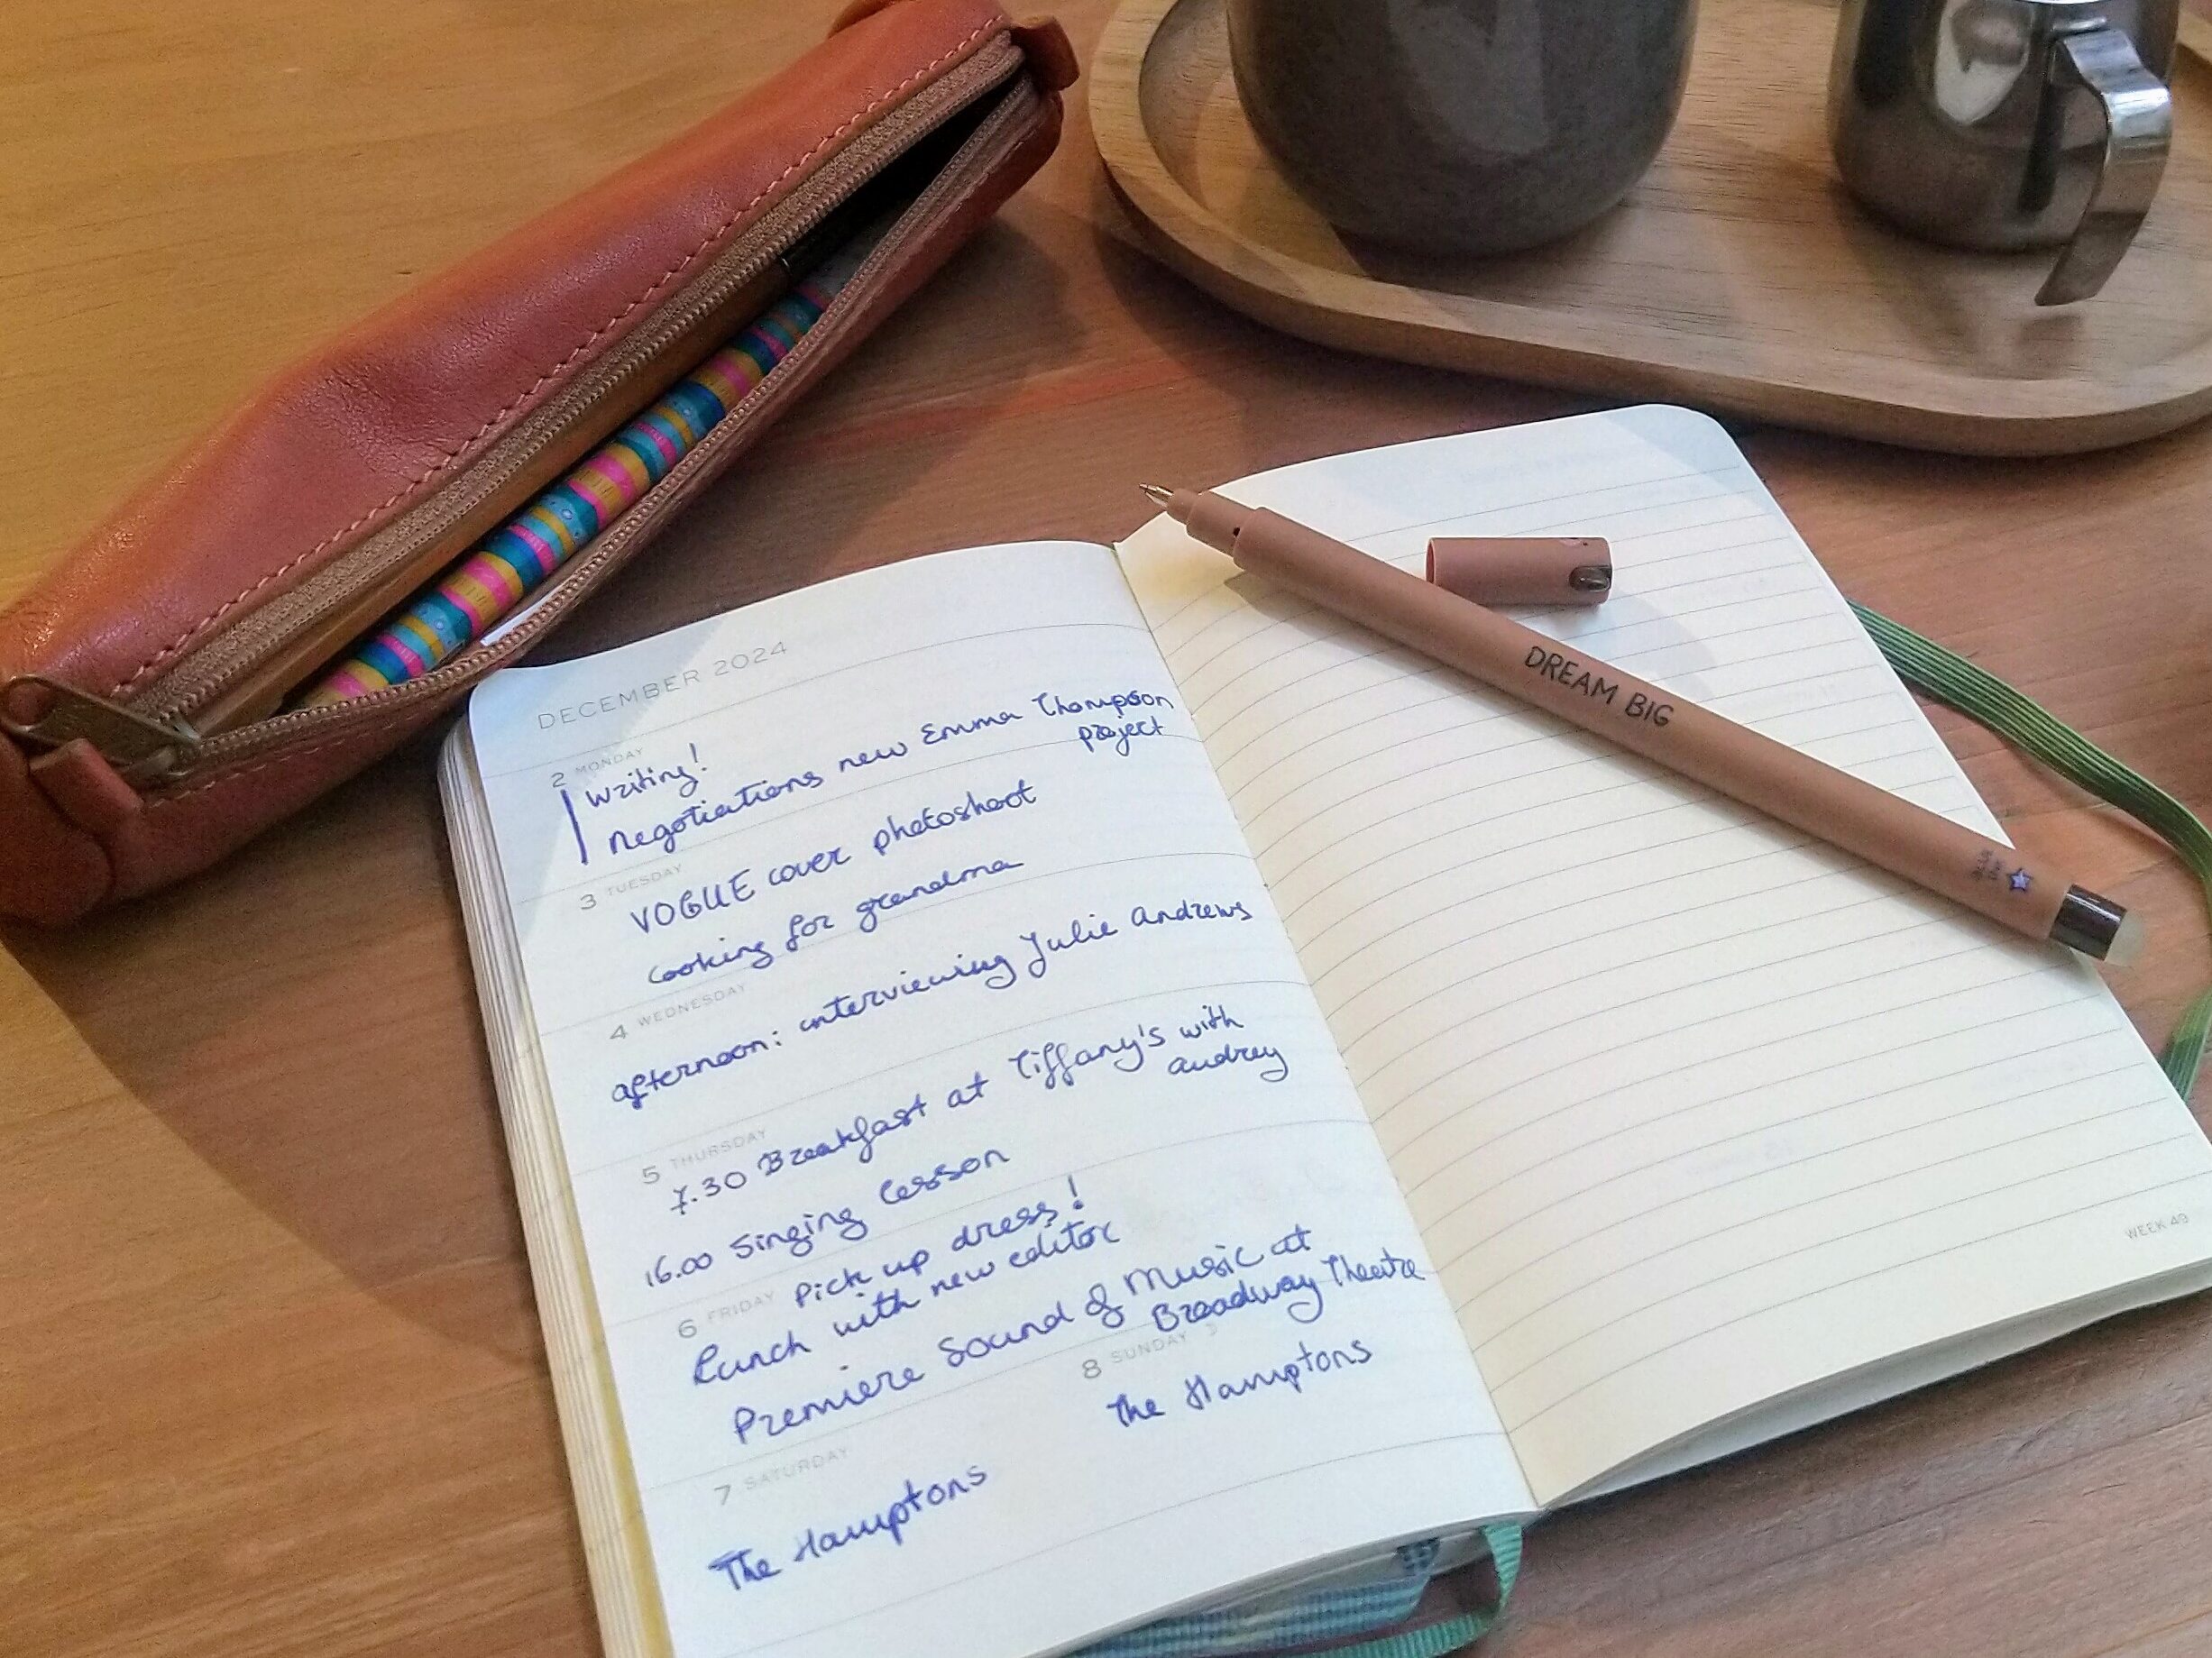 DECEMBER 2024
2 MONDAY
Writing!
Negotiations new Emma Thompson
project
3 TUESDAY
VOGUE cover photoshoot
Cooking for grandma
4 WEDNESDAY
afternoon: interviewing Julie Andrews
5 THURSDAY
7.30 Breakfast at Tiffany's with
Audrey
16.00 Singing Lesson
6 FRIDAY Pick up dress!
Lunch with new editor
Premiere Sound of Music at
Broadway Theatre
7 SATURDAY
The Hamptons
8 SUNDAY
The Hamptons
DREAM BIG
WEEK 49